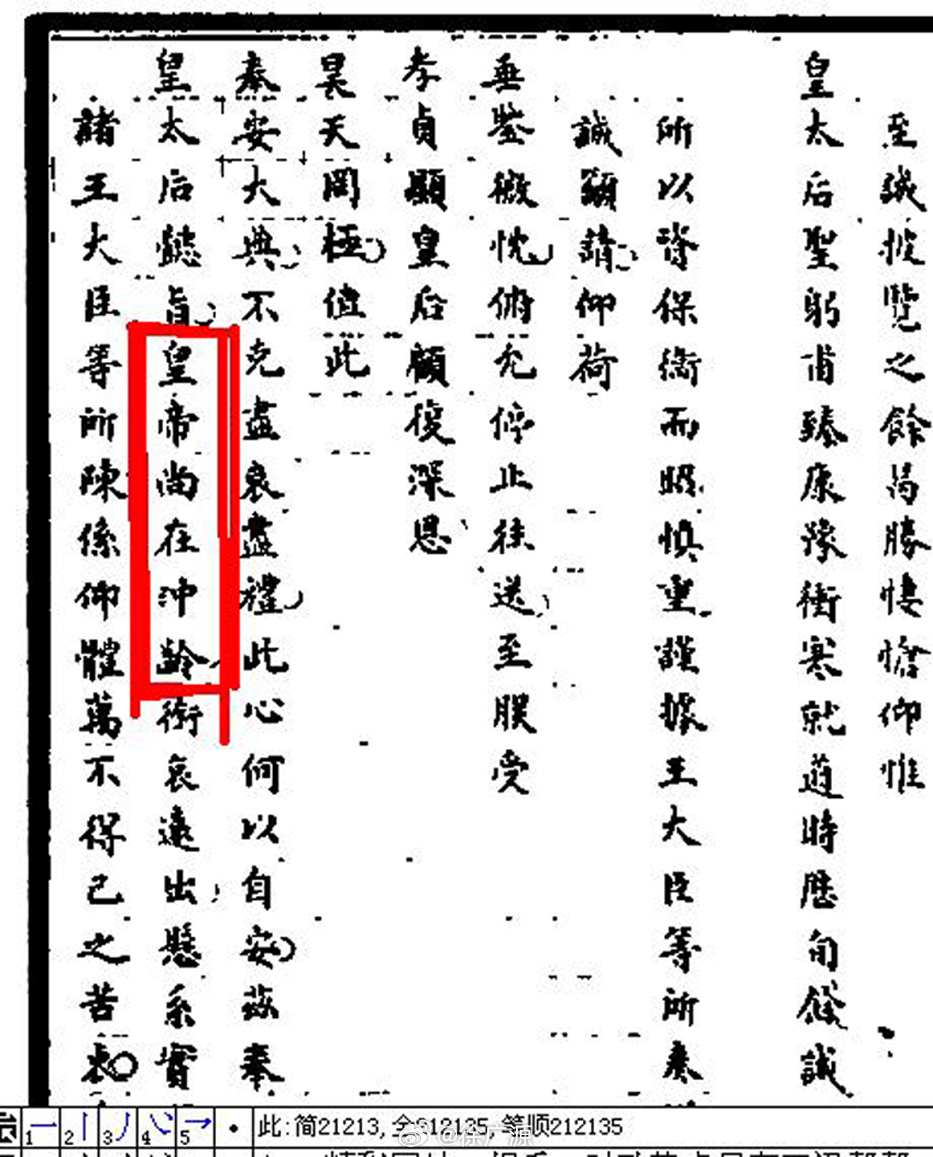 至誠披覽之餘曷勝悽愴仰惟
皇太后聖躬甫臻康豫衝寒就道時歷旬餘誠
所以資保衛而昭慎重謹據王大臣等所奏
誠籲請仰荷
垂鑒微忱俯允停止往送至朕受
孝貞顯皇后顧復深恩
昊天罔極值此
奉安大典不克盡哀盡禮此心何以自安茲奉
皇太后懿旨皇帝尚在沖齡銜哀遠出懸系實
諸王大臣等所陳係仰體萬不得已之苦衷
1一 2丨 3丿 4 5 • 此:简21213,全212135,笔顺212135
@徐广源